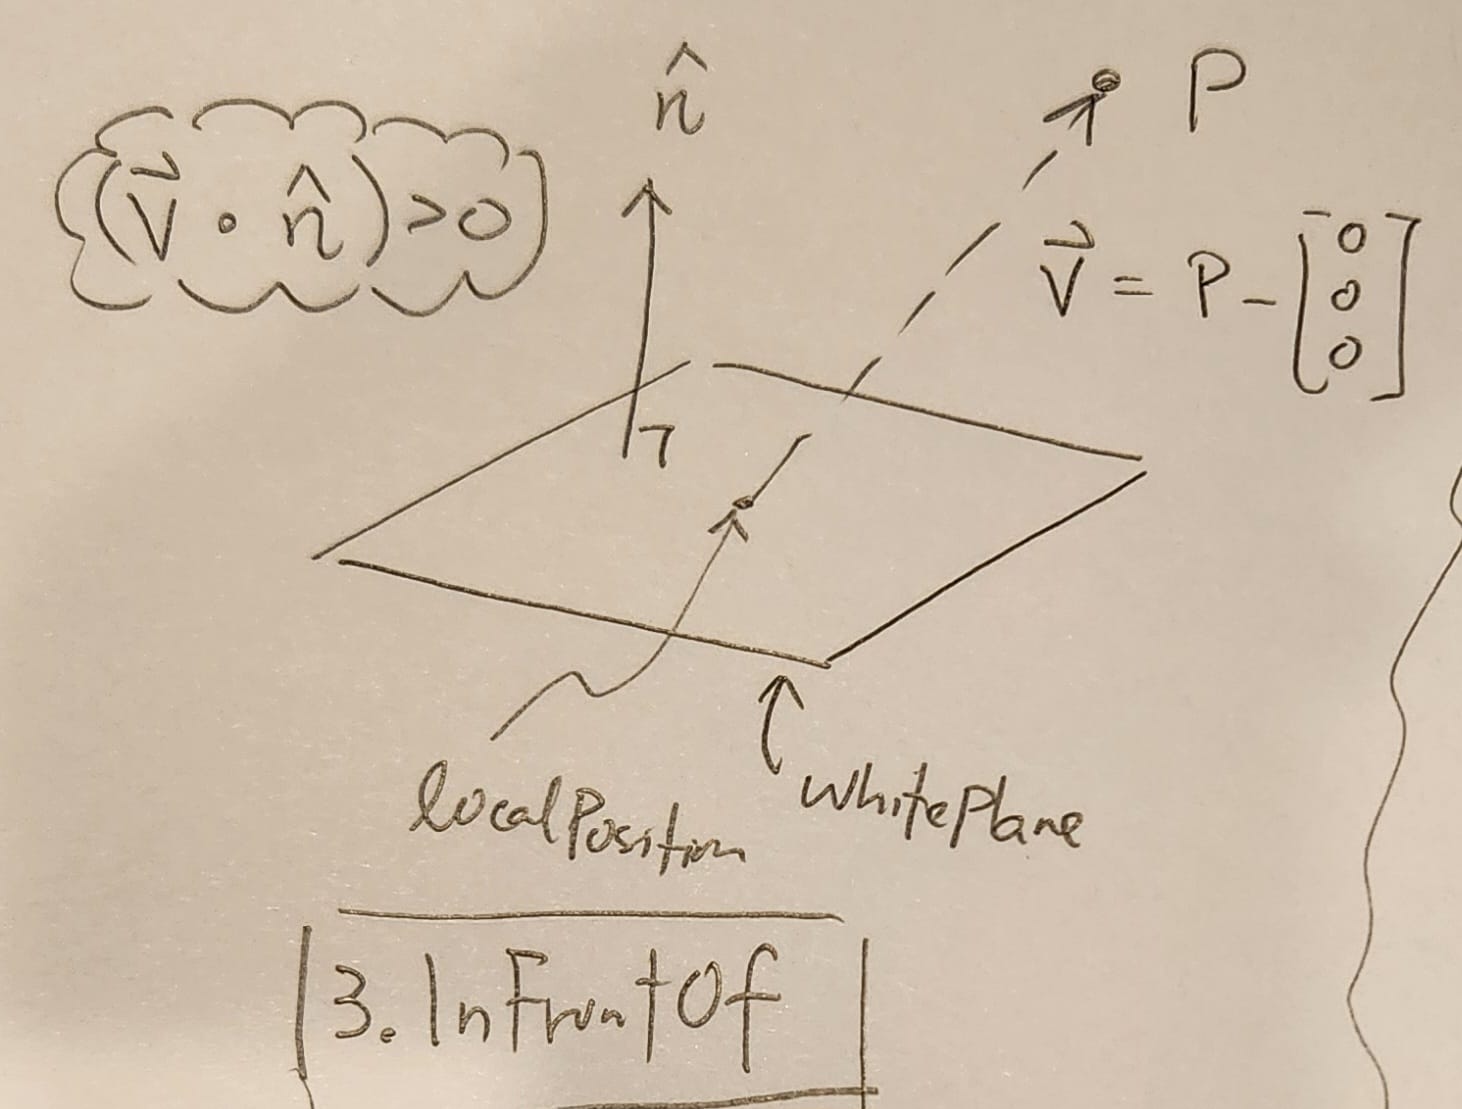 n̂
P
(V⃗ • n̂) >0
V⃗ = P - [0 0 0]
localPosition
whitePlane
3. InFrontOf